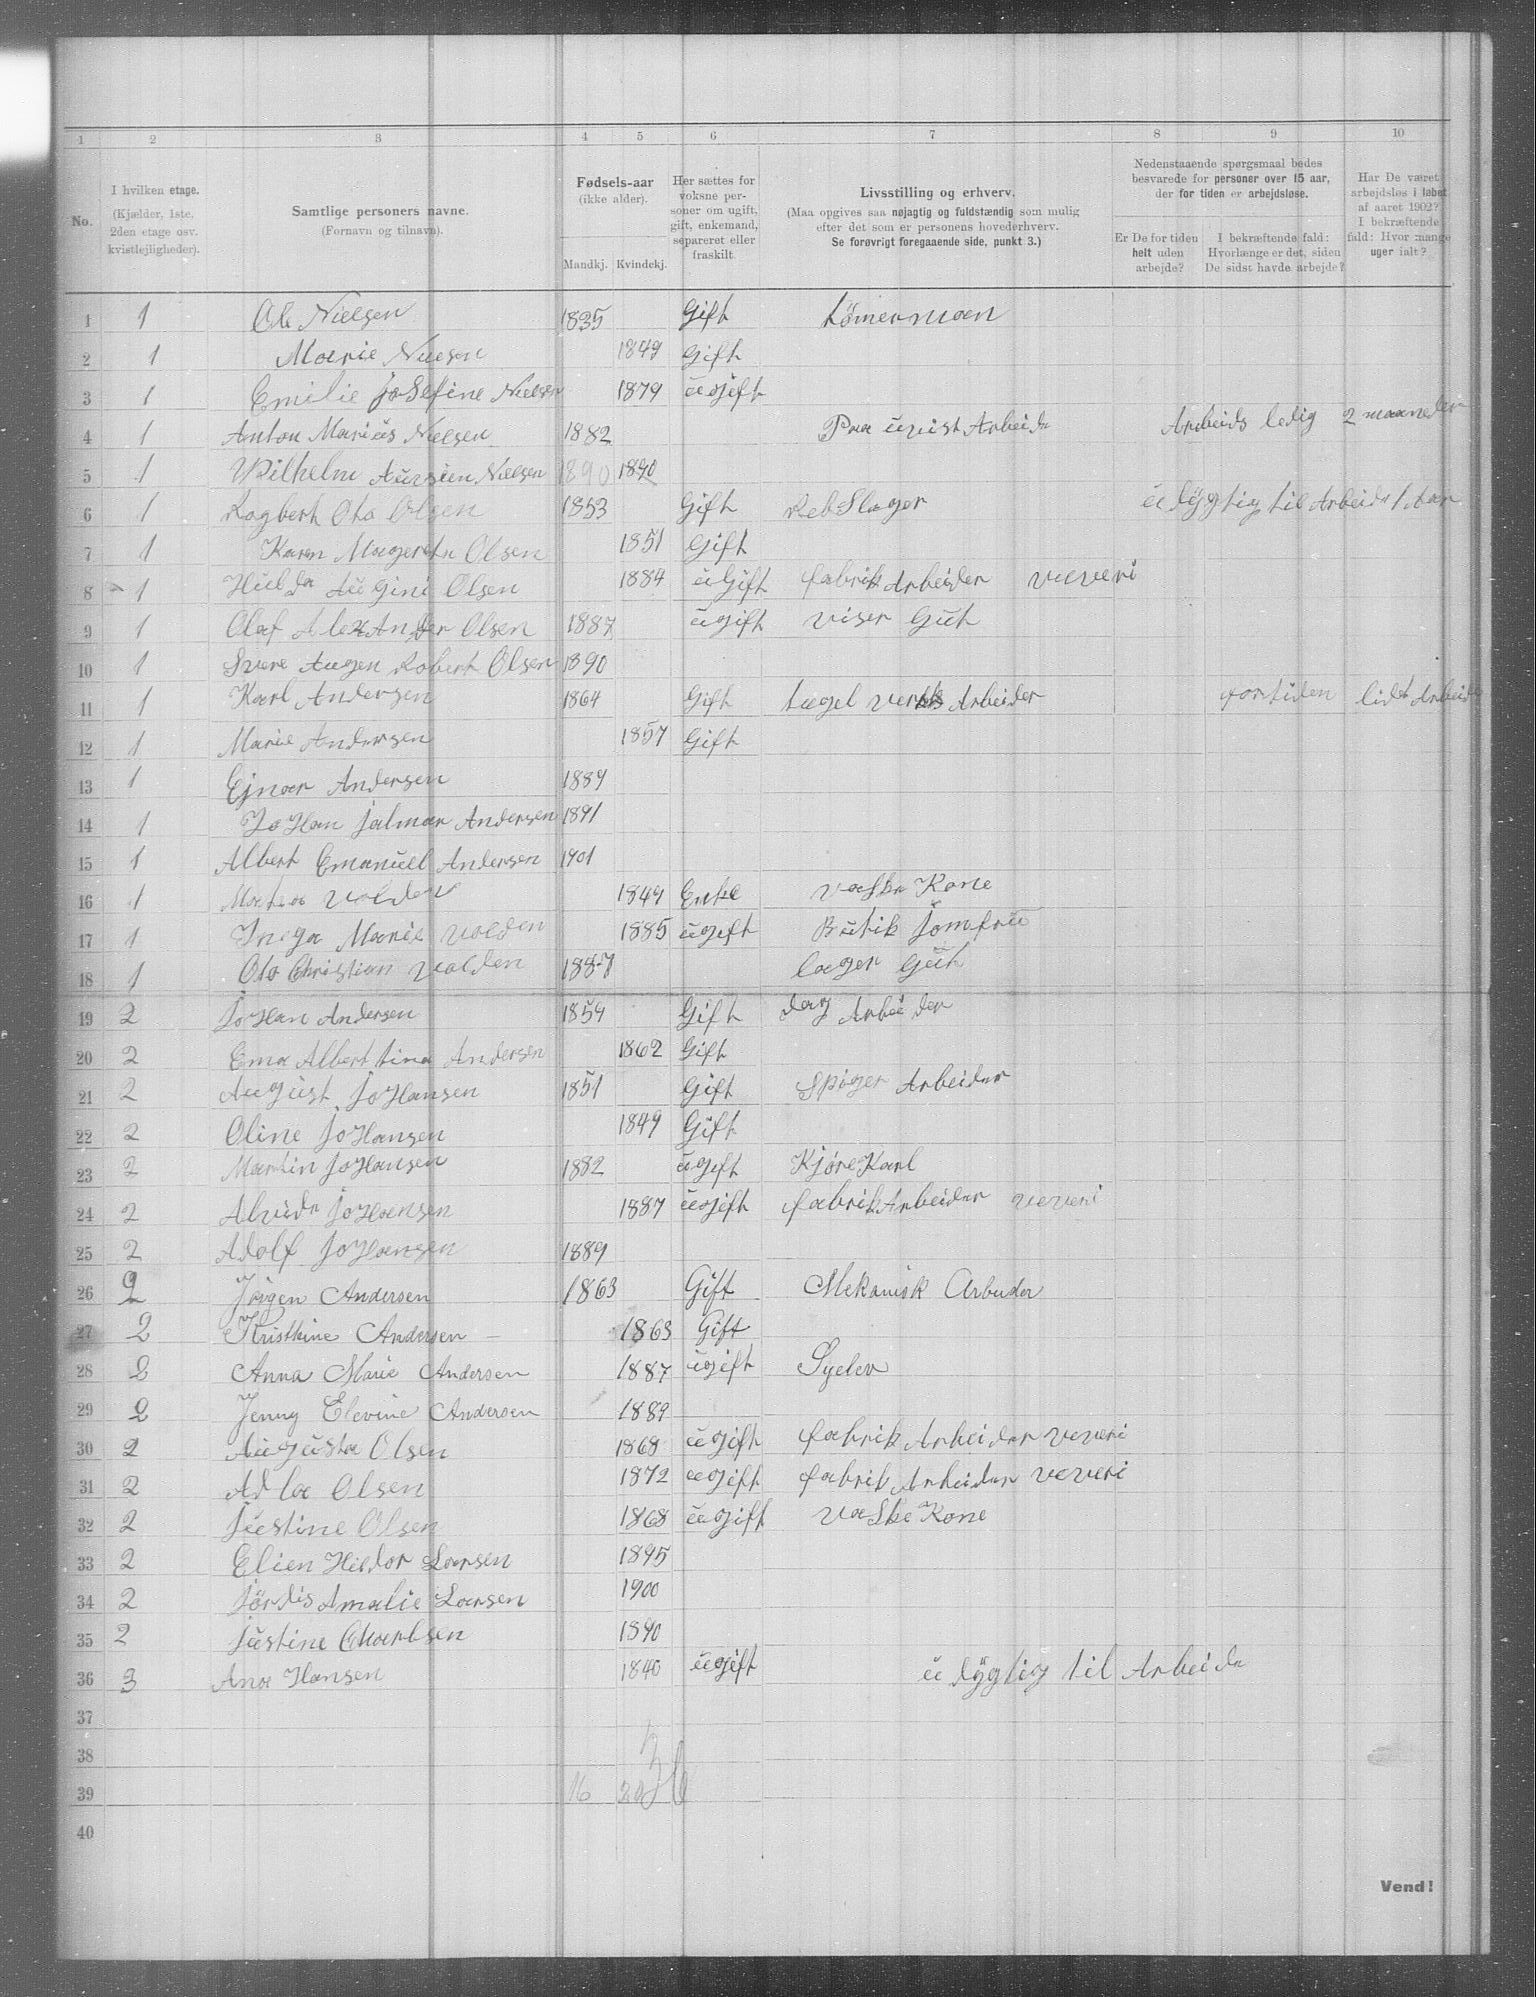 1 2 3 4 5 6 7 8 9 10
No.
I hvilken etage.
(Kjælder, 1ste,
2den etage osv.
kvistlejligheder).
Samtlige personers navne.
(Fornavn og tilnavn).
Fødsels-aar
(ikke alder).
Mandkj. Kvindekj.
Her sættes for
voksne per-
soner om ugift,
gift, enkemand,
separeret eller
fraskilt.
Livsstilling og erhverv.
(Maa opgives saa nøjagtig og fuldstændig som mulig
efter det som er personens hovederhverv.
Se forøvrigt foregaaende side, punkt 3.)
Nedenstaaende spørgsmaal bedes
besvarede for personer over 15 aar,
der for tiden er arbejdsløse.
Er De for tiden
helt uden
arbejde?
I bekræftende fald:
Hvorlænge er det, siden
De sidst havde arbejde?
Har De været
arbejdsløs i løbet
af aaret 1902?
I bekræftende
fald: Hvor mange
uger ialt?
1 1 Ole Nielsen 1835 Gift tömermaen
2 1 Maerie Nielsen 1849 Gift
3 1 Emilie josefine Nielsen 1879 ŭgift
4 1 Anton Mariŭs Nielsen 1882 Paa ŭvist Arbeide Arbeids ledig 2 maaneder
5 1 Vilhelm Nielsen 1890 1890
6 1 Ragbert Oto Olsen 1853 Gift RebSlager ŭ dygtig til Arbeide 1 Aar
7 1 Karen Magerete Olsen 1851 Gift
8 1 Hilda Aŭgini Olsen 1884 ŭGift fabrik Arbeider veveri
9 1 Olaf AlexAnder Olsen 1887 ŭgift viser Gŭt
10 1 Svere Aŭgen Robert Olsen 1890
11 1 Karl Andersen 1864 Gift tægel verks Arbeider fortiden lidet Arbeide
12 1 Marie Andersen 1857 Gift
13 1 Ejnar Andersen 1889
14 1 JoHan jalmar Andersen 1891
15 1 Albert Emanŭel Andersen 1901
16 1 Volden 1849 Enke vaske Kone
17 1 Inga Marie Volden 1885 ŭgift Bŭtik jomfrŭ
18 1 Oto Christian Volden 1887 lager Gŭt
19 2 joHan Andersen 1859 Gift dag Arbeider
20 2 Ema Alberttina Andersen 1862 Gift
21 2 Aŭgŭst joHansen 1851 Gift Spiger Arbeider
22 2 Oline joHansen 1849 Gift
23 2 Martin joHansen 1882 ŭgift KjøreKarl
24 2 Alvide joHansen 1887 ŭgift fabrikArbeider veveri
25 2 Adolf joHansen 1889
26 2 Jörgen Andersen 1863 Gift Mekanisk Arbeider
27 2 Kristhine Andersen – 1863 Gift
28 2 Anna Marie Andersen 1887 ŭgift Syelev
29 2 Jenny Elevine Andersen 1889
30 2 Aŭgŭsta Olsen 1868 ŭgift fabrik Arbeider veveri
31 2 Adla Olsen 1872 ŭgift fabrik Arbeider veveri
32 2 jŭstine Olsen 1868 ŭgift vaske Kone
33 2 Elien Heldor Larsen 1895
34 2 jördis Amalie Larsen 1900
35 2 jŭstine Charlsen 1890
36 3 Ana Hansen 1840 ŭgift ŭ dygtig til Arbeide
37
38
39 16 20 36
40
Vend!